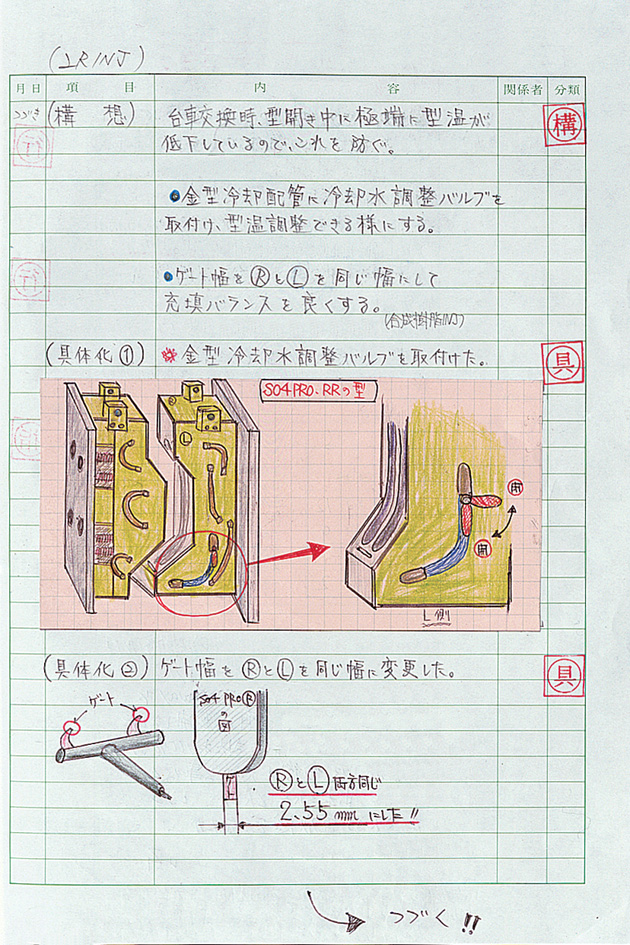 (LRINJ)
月日 項目 内容 関係者 分類
つづき (構想) 台車交換時、型開き中に極端に型温が 構
低下しているので、これを防ぐ。
●金型冷却配管に冷却水調整バルブを
取付け、型温調整できる様にする。
●ゲート幅をⓇとⓁを同じ幅にして
充填バランスを良くする。
(合成樹脂INJ)
(具体化①) 金型冷却水調整バルブを取付けた。 具
S04PRO.RRの型
Ⓛ
開
閉
L側
(具体化②) ゲート幅をⓇとⓁを同じ幅に変更した。 具
ゲート
S04 PROⓇ
の図
ⓇとⓁ両方同じ
2.55mmにした!!
つづく!!